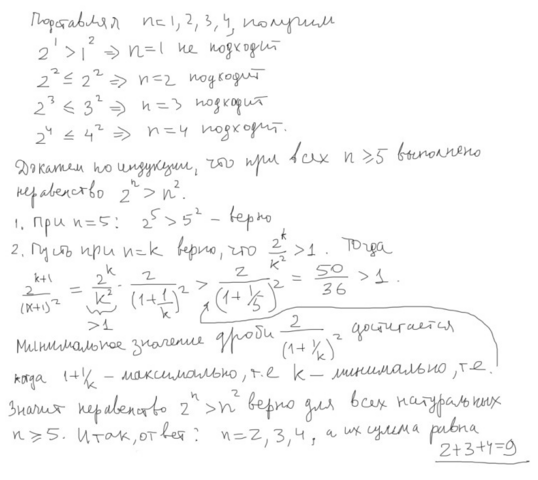 Подставляя n=1, 2, 3, 4, получим
2¹ > 1² ⇒ n=1 не подходит
2² ≤ 2² ⇒ n=2 подходит
2³ ≤ 3² ⇒ n=3 подходит
2⁴ ≤ 4² ⇒ n=4 подходит.
Докажем по индукции, что при всех n ≥ 5 выполнено
неравенство 2ⁿ > n².
1. При n=5: 2⁵ > 5² – верно
2. Пусть при n=k верно, что 2ᵏ/k² > 1. Тогда
2ᵏ⁺¹/(k+1)² = 2ᵏ/k² · 2/(1+1/k)² > 2/(1+1/5)² = 50/36 > 1.
>1
Минимальное значение дроби 2/(1+1/k)² достигается
когда 1+1/k – максимально, т.е k – минимально, т.е.
Значит неравенство 2ⁿ > n² верно для всех натуральных
n ≥ 5. Итак, ответ: n=2, 3, 4, а их сумма равна
2+3+4=9